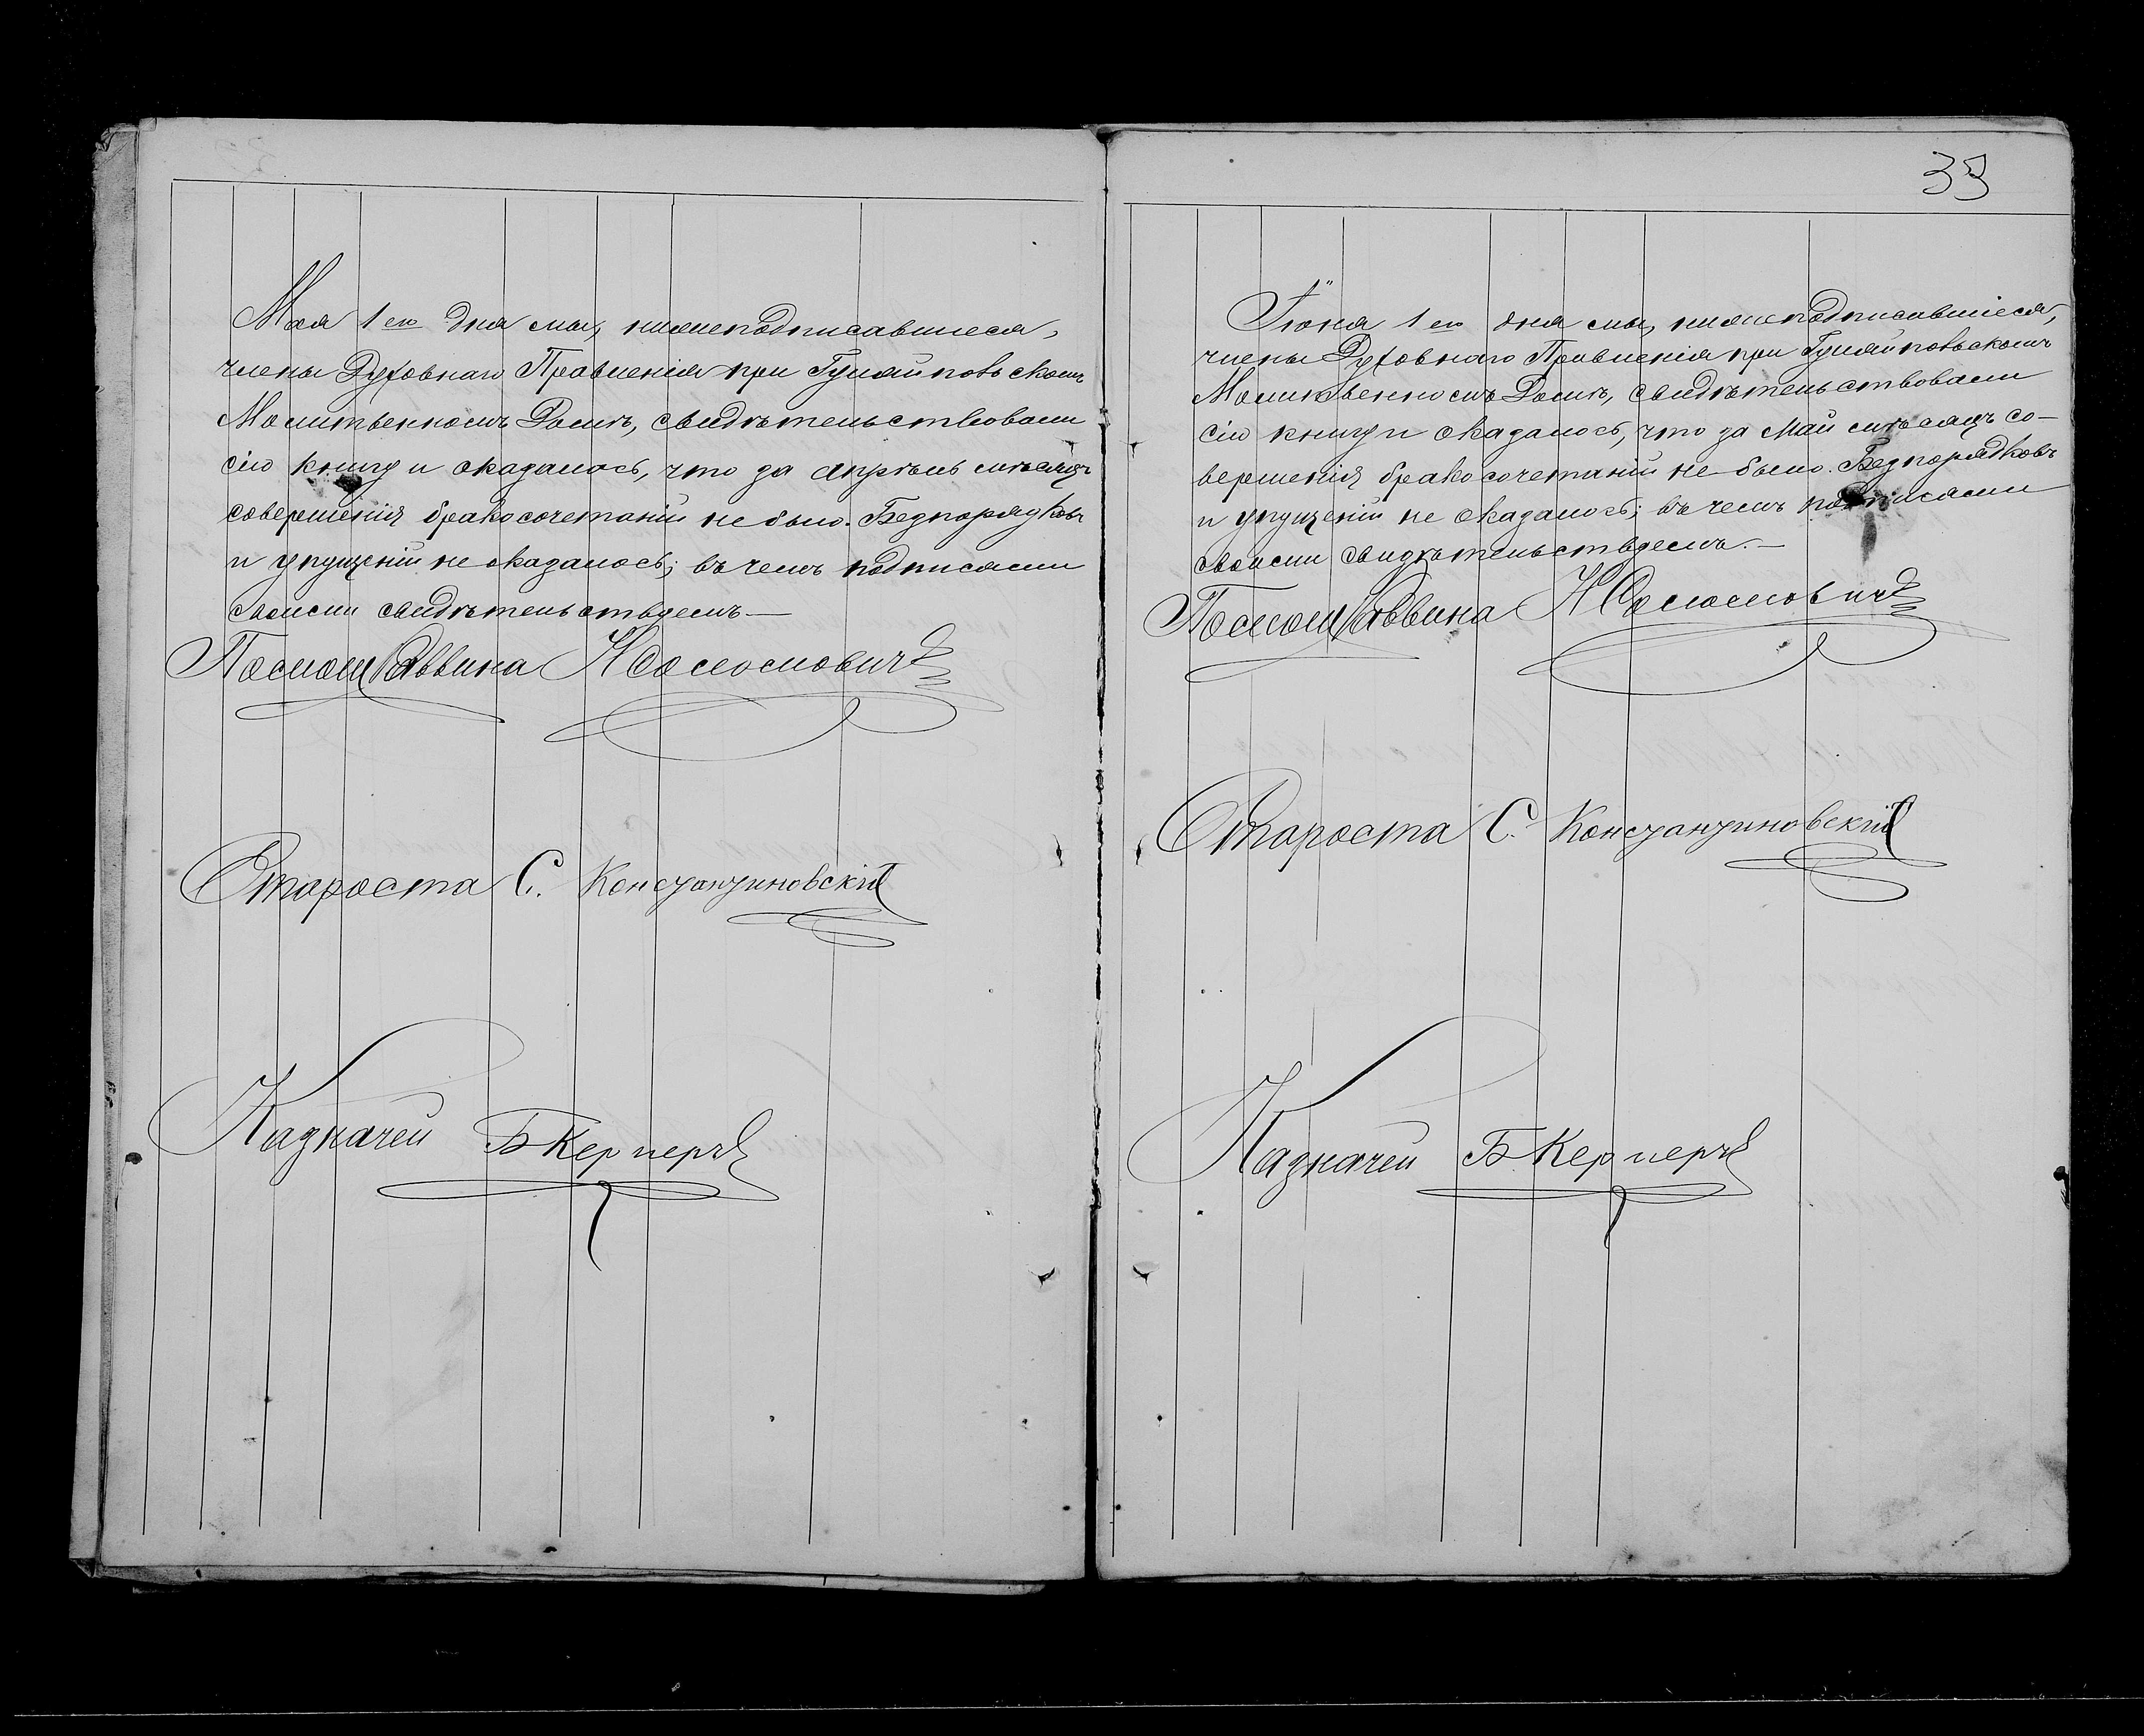 Мая 1го дня мы, нижеподписавшiеся,
члены Духовнаго Правленiя при Гуляйпольскомъ
Молитвенномъ Домѣ, свидѣтельствовали
сiю книгу и оказалось, что за Апрѣль мѣсяцъ
совершенiя бракосочетанiй не было. Безпорядковъ
и упущенiй не оказалось; въ чемъ подписами
своими свидѣтельствуемъ.—
Помощ Раввина И Соломоновичъ
Староста С. Константиновскiй
Казначей Б Кернеръ
33
Iюня 1го дня мы, нижеподписавшiеся,
члены Духовнаго Правленiя при Гуляйпольскомъ
Молитвенномъ Домѣ, свидѣтельствовали
сiю книгу и оказалось, что за Май мѣсяцъ со-
вершенiя бракосочетанiй не было. Безпорядковъ
и упущенiй не оказалось; въ чемъ подписами
своими свидѣтельствуемъ.—
Помощ Раввина И Соломоновичъ
Староста С. Константиновскiй
Казначей Б. Кернеръ